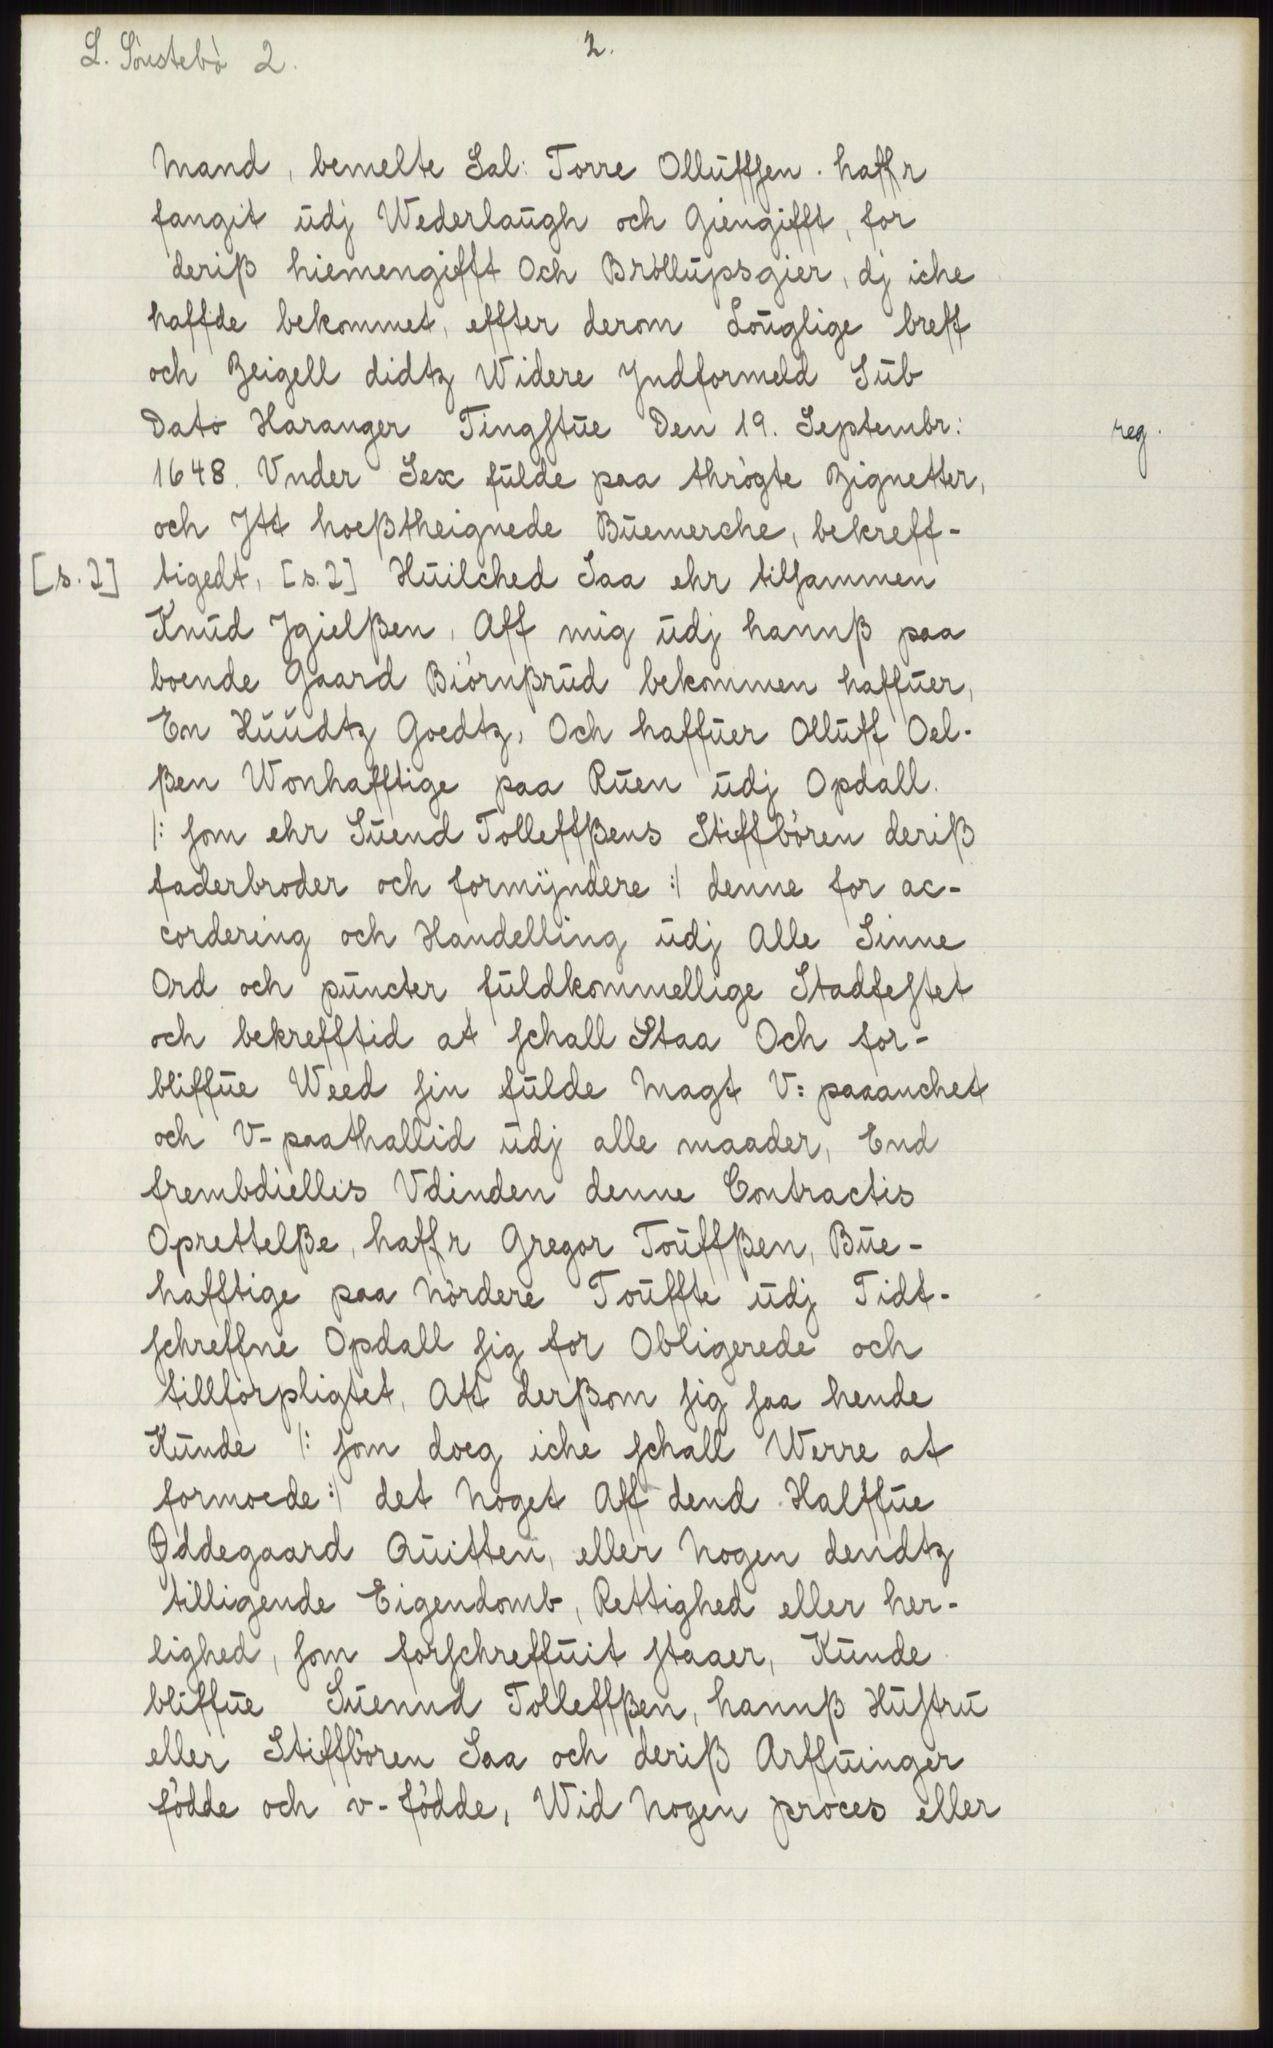 L. Sönstebö 2.
2.
Mand, bemelte Sal: Torre Olluffsen. haffr
fangit udj Wederlaugh och Giengifft, for
deriß hiemengifft Och Bröllupsgier, dj iche
haffde bekommet, effter derom Louglige breff
och Zeigell didtz Widere Jndformeld Sub
Dato Haranger Tingstue Den 19. Septembr:
reg.
1648. Vnder Sex fulde paa thrögte Zignetter,
och Jtt hoeßtheignede Buemerche, bekreff-
[s. 2] tigedt, [s. 2] Huilched Saa ehr tilsammen
Knud Jgielßen, Aff mig udj hannß paa
boende Gaard Biörnßrud bekommen haffuer,
En Huudtz Goedtz, Och haffuer Olluff Oel-
ßen Wonhafftige paa Ruen udj Opdall.
/: som ehr Suend Tolleffßens Stiffbören deriß
faderbroder och formÿndere :/ denne for ac-
cordering och Handelling udj Alle Sinne
Ord och puncter fuldkommellige Stadfestet
och bekrefftid at schall Staa Och for-
bliffue Weed sin fulde Magt V: paaanchet
och V-paathallid udj alle maader, End
frembdiellis Vdinden denne Contractis
Oprettelße, haffr Gregor Touffßen, Bue-
hafftige paa Nördere Touffte udj Tidt-
schreffne Opdall sig for Obligerede och
tillforpligtet, Att derßom sig saa hende
Kunde /: som doeg iche schall Werre at
formoede :/ det Noget Aff dend Halffue
Øddegaard Quitten, eller Nogen dendtz
tilligende Eigendomb, Rettighed eller her-
lighed, som forschreffuit staaer, Kunde
bliffue Suennd Tolleffßen, hannß Hustru
eller Stiffbören Saa och deriß Arffuinger
födde och v-födde, Wid Nogen proces eller